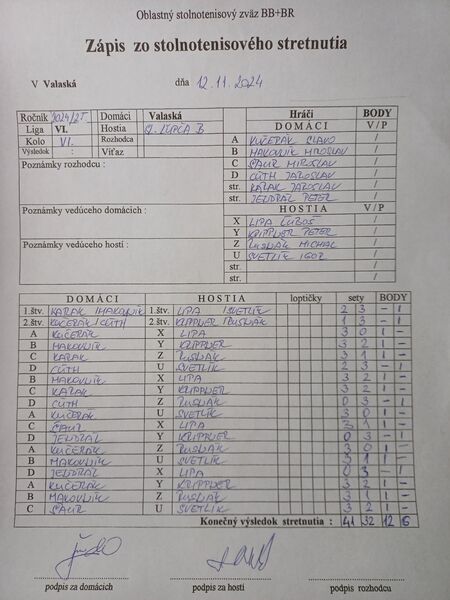 Oblastný stolnotenisový zväz BB+BR
Zápis zo stolnotenisového stretnutia
V Valaská dňa 12.11.2024
Ročník 2024/25 Domáci Valaská Hráči BODY
Liga VI. Hostia Ľ. ĽUPČA B DOMÁCI V/P
Kolo VI. Rozhodca A KUČERÁK /
Výsledok : Víťaz B MAKOVNÍK MIROSLAV /
Poznámky rozhodcu : C ŠAUR MIROSLAV /
D CÚTH JAROSLAV /
str. KAŽÁK JAROSLAV /
str. JENDRÁL PETER /
Poznámky vedúceho domácich : HOSTIA V/P
X LIPA ĽUBOŠ /
Y KRIPPLER PETER /
Poznámky vedúceho hostí : Z MICHAL /
U SVETLÍK IGOR /
str. /
str. /
DOMÁCI HOSTIA loptičky sety BODY
1.štv. KAŽÁK /MAKOVNÍK 1.štv. LIPA /SVETLÍK 2 3 - 1
2.štv. KUČERÁK /CÚTH 2.štv. KRIPPLER / 1 3 - 1
A KUČERÁK X LIPA 3 0 1 -
B MAKOVNÍK Y KRIPPLER 3 2 1 -
C KAŽÁK Z 3 1 1 -
D CÚTH U SVETLÍK 2 3 - 1
B MAKOVNÍK X LIPA 3 2 1 -
C KAŽÁK Y KRIPPLER 3 2 1 -
D CÚTH Z 0 3 - 1
A KUČERÁK U SVETLÍK 3 0 1 -
C ŠAUR X LIPA 3 1 1 -
D JENDRÁL Y KRIPPLER 0 3 - 1
A KUČERÁK Z 3 0 1 -
B MAKOVNÍK U SVETLÍK 3 1 1 -
D JENDRÁL X LIPA 0 3 - 1
A KUČERÁK Y KRIPPLER 3 2 1 -
B MAKOVNÍK Z 3 1 -
C ŠAUR U SVETLÍK 3 1 -
Konečný výsledok stretnutia : 41 32 12 6
podpis za domácich podpis za hostí podpis rozhodcu